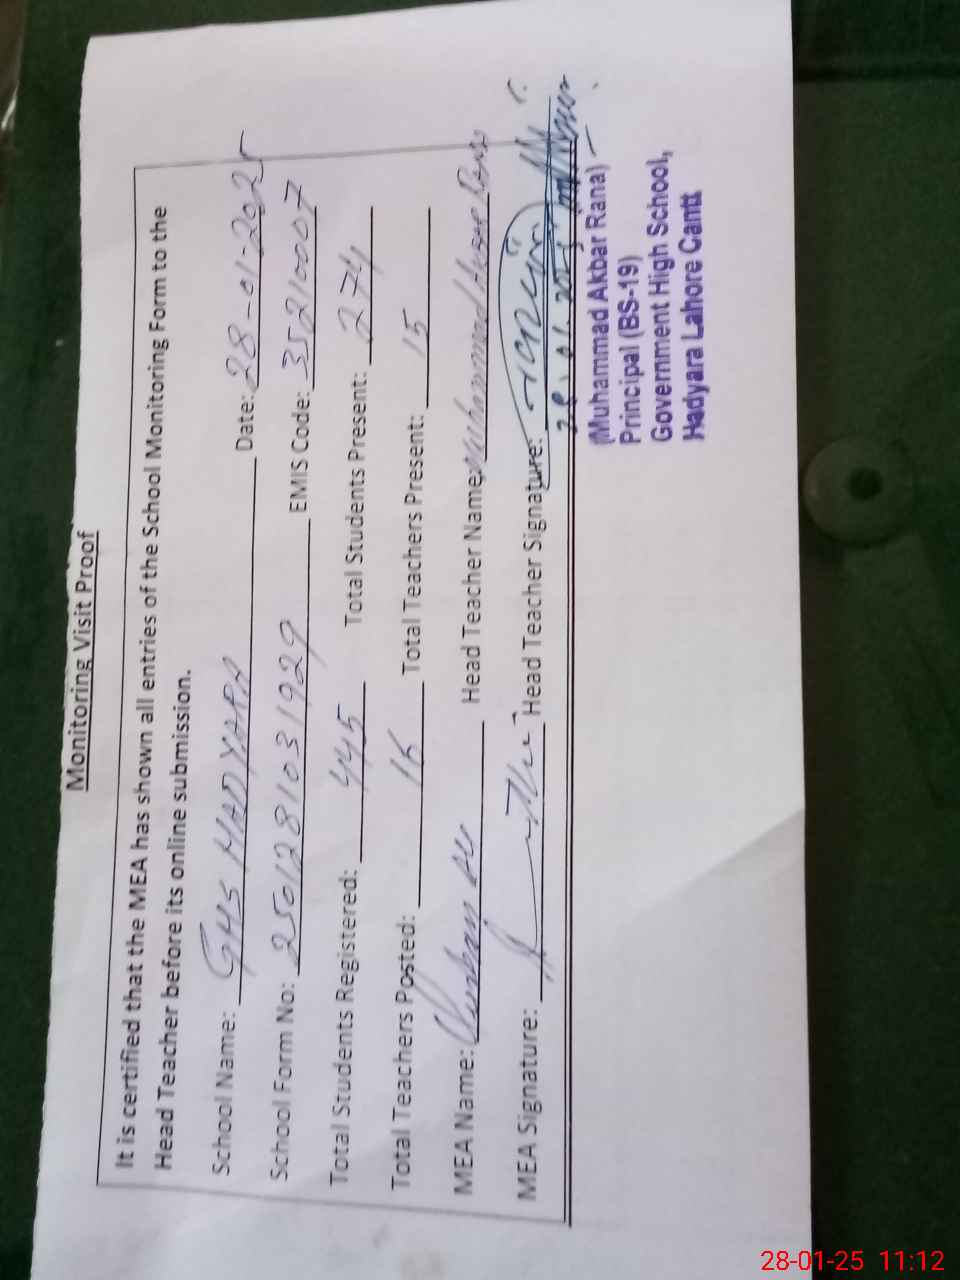 Monitoring Visit Proof
It is certified that the MEA has shown all entries of the School Monitoring Form to the
Head Teacher before its online submission.
School Name: GHS HADYARA Date: 28-01-2025
School Form No: 2501281031929 EMIS Code: 35210007
Total Students Registered: 445 Total Students Present: 274
Total Teachers Posted: 16 Total Teachers Present: 15
MEA Name: Head Teacher Name: Muhammad Akbar Rana
MEA Signature: Head Teacher Signature:
28.01.2025
(Muhammad Akbar Rana)
Principal (BS-19)
Government High School,
Hadyara Lahore Cantt
28-01-25 11:12